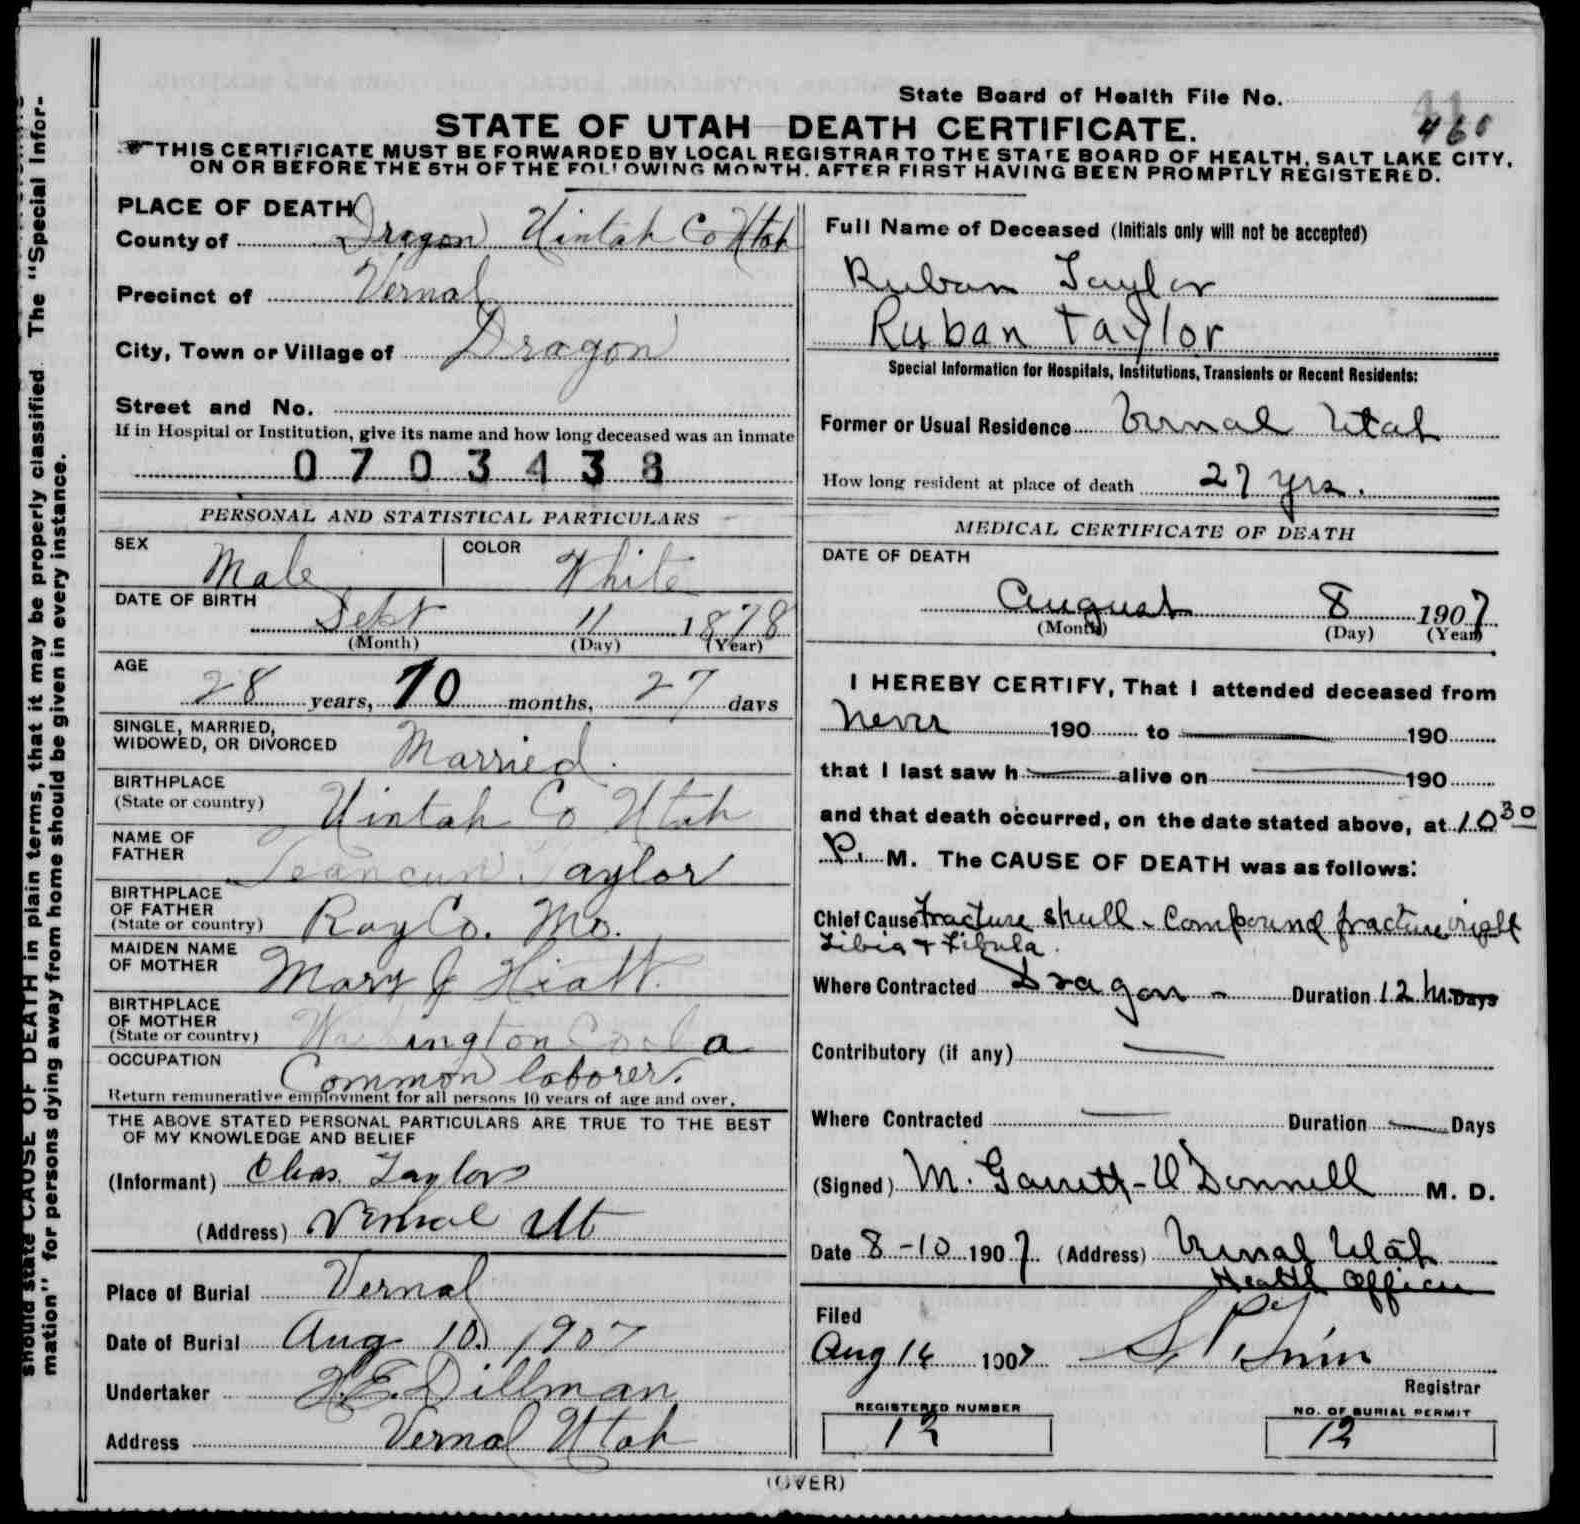 should state CAUSE OF DEATH in plain terms, that it may be properly classified. The "Special Infor-
mation" for persons dying away from home should be given in every instance.
State Board of Health File No.
STATE OF UTAH DEATH CERTIFICATE.
THIS CERTIFICATE MUST BE FORWARDED BY LOCAL REGISTRAR TO THE STATE BOARD OF HEALTH, SALT LAKE CITY,
ON OR BEFORE THE 5TH OF THE FOLLOWING MONTH, AFTER FIRST HAVING BEEN PROMPTLY REGISTERED.
PLACE OF DEATH
County of Dragon Uintah Co Utah
Precinct of Vernal
City, Town or Village of Dragon
Street and No.
If in Hospital or Institution, give its name and how long deceased was an inmate
0703438
PERSONAL AND STATISTICAL PARTICULARS
SEX Male COLOR White
DATE OF BIRTH
Sept 11 1878
(Month) (Day) (Year)
AGE
28 years, 10 months, 27 days
SINGLE, MARRIED,
WIDOWED, OR DIVORCED Married.
BIRTHPLACE
(State or country) Uintah Co Utah
NAME OF
FATHER Taylor
BIRTHPLACE
OF FATHER
(State or country) Ray Co. Mo.
MAIDEN NAME
OF MOTHER Mary J Hiatt
BIRTHPLACE
OF MOTHER
(State or country) Washington Co
OCCUPATION
Common laborer.
Return remunerative employment for all persons 10 years of age and over.
THE ABOVE STATED PERSONAL PARTICULARS ARE TRUE TO THE BEST
OF MY KNOWLEDGE AND BELIEF
(Informant) Chas. Taylor
(Address) Vernal Ut
Place of Burial Vernal
Date of Burial Aug 10, 1907
Undertaker Dillman
Address Vernal Utah
Full Name of Deceased (Initials only will not be accepted)
Ruban Taylor
Ruban Taylor
Special Information for Hospitals, Institutions, Transients or Recent Residents:
Former or Usual Residence Vernal Utah
How long resident at place of death 27 yrs.
MEDICAL CERTIFICATE OF DEATH
DATE OF DEATH
August 8 1907
(Month) (Day) (Year)
I HEREBY CERTIFY, That I attended deceased from
never 190 to 190
that I last saw h alive on 190
and that death occurred, on the date stated above, at 10 30
P. M. The CAUSE OF DEATH was as follows:
Chief Cause Fracture skull - Compound fracture right
Tibia + Fibula.
Where Contracted Dragon - Duration 12 h. Days
Contributory (if any)
Where Contracted Duration Days
(Signed) M. Garrett-O'Donnell M. D.
Date 8-10 1907 (Address) Vernal Utah
Health Officer
Filed
Aug 14 1907
Registrar
REGISTERED NUMBER
12
NO. OF BURIAL PERMIT
12
(OVER)